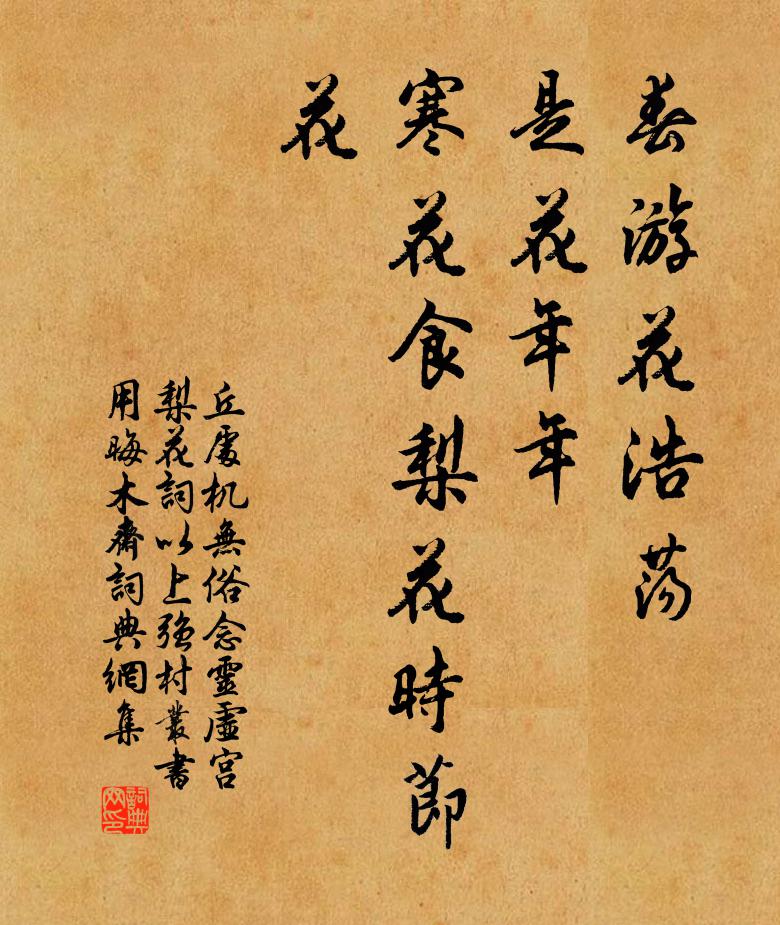 春游花浩蕩
是花年年
寒花食梨花時節
花
丘處机無俗念靈虛宮
梨花詞以上強村叢書
用晦木齋詞典網集
詞典網印